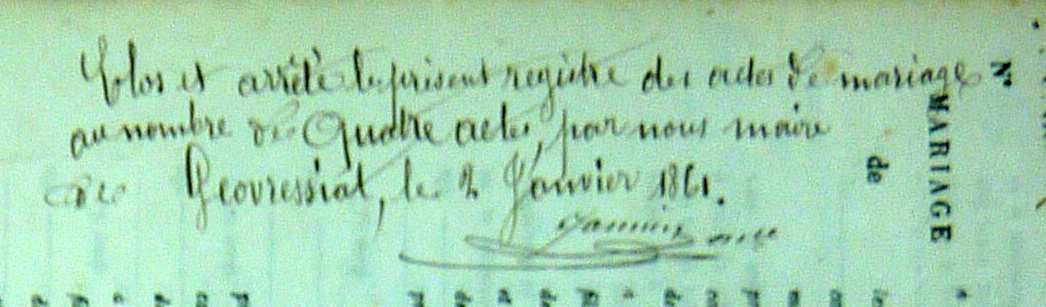 Clos et arrêté le présent registre des actes de mariage
au nombre de Quatre actes, par nous maire
de Géovressiat, le 2 Janvier 1861.
maire
N°
MARIAGE
de